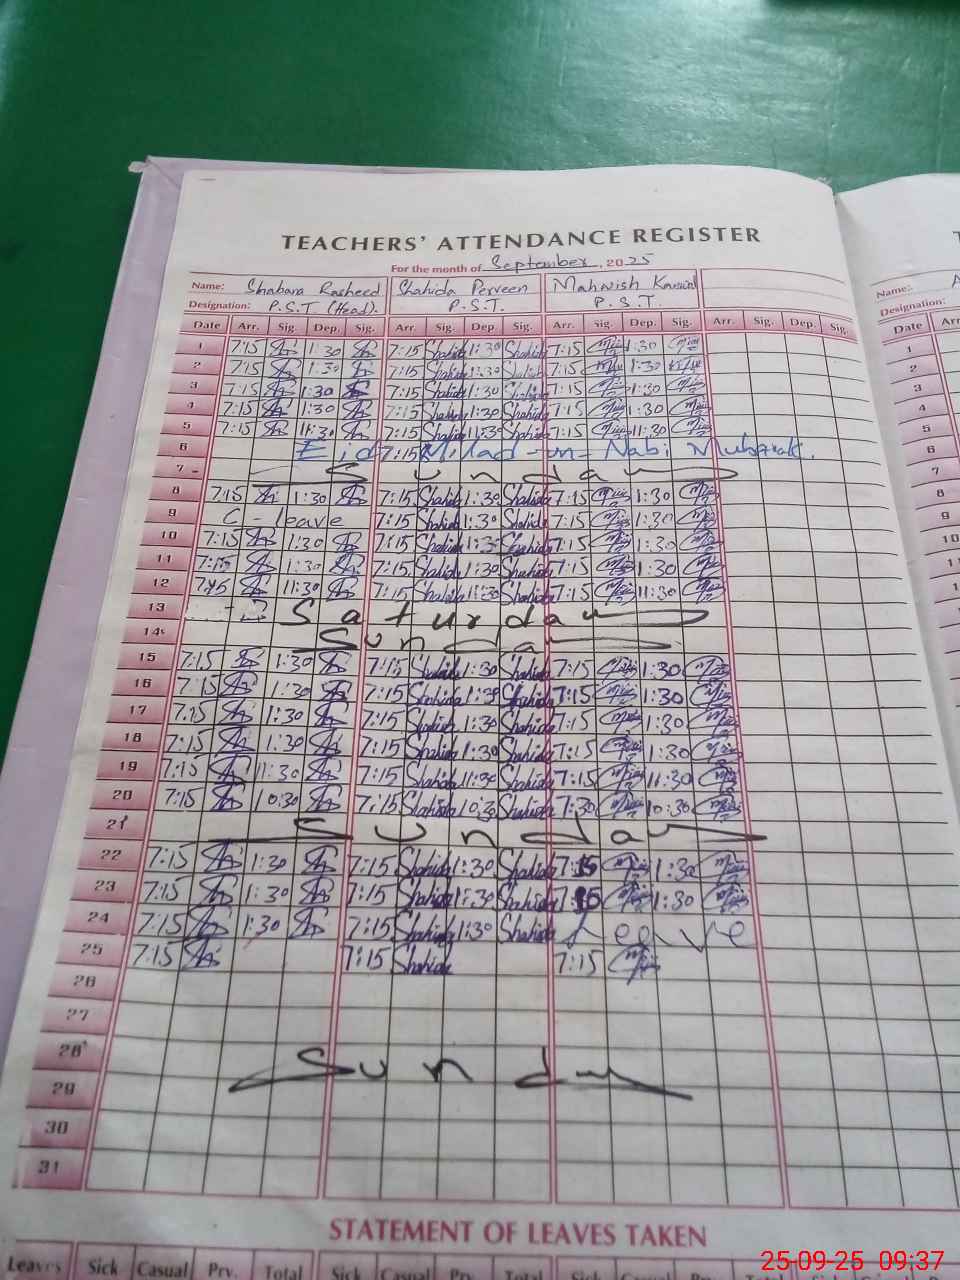 TEACHERS' ATTENDANCE REGISTER
For the month of September, 2025
Name: Shabara Rasheed Shahida Perveen Mahwish Kanwal Name:
Designation: P.S.T. (Head). P.S.T. P.S.T. Designation:
Date Arr. Sig. Dep. Sig. Arr. Sig. Dep. Sig. Arr. Sig. Dep. Sig. Arr. Sig. Dep. Sig. Date Arr
1 7:15 1:30 7:15 Shahida 1:30 Shahida 7:15 1:30 1
2 7:15 1:30 7:15 Shahida 1:30 Shahida 7:15 1:30 2
3 7:15 1:30 7:15 Shahida 1:30 Shahida 7:15 1:30 3
4 7:15 1:30 7:15 Shahida 1:30 Shahida 7:15 1:30 4
5 7:15 11:30 7:15 Shahida 11:30 Shahida 7:15 11:30 5
6 Eid 7:15 Milad-un-Nabi Mubarak. 6
7 Sunday 7
8 7:15 1:30 7:15 Shahida 1:30 Shahida 7:15 1:30 8
9 C-leave 7:15 Shahida 1:30 Shahida 7:15 1:30 9
10 7:15 1:30 7:15 Shahida 1:30 Shahida 7:15 1:30 10
11 7:15 1:30 7:15 Shahida 1:30 Shahida 7:15 1:30
12 7:15 11:30 7:15 Shahida 11:30 Shahida 7:15 11:30
13 Saturday
14 Sunday
15 7:15 1:30 7:15 Shahida 1:30 Shahida 7:15 1:30
16 7:15 1:30 7:15 Shahida 1:30 Shahida 7:15 1:30
17 7:15 1:30 7:15 Shahida 1:30 Shahida 7:15 1:30
18 7:15 1:30 7:15 Shahida 1:30 Shahida 7:15 1:30
19 7:15 11:30 7:15 Shahida 11:30 Shahida 7:15 11:30
20 7:15 10:30 7:15 Shahida 10:30 Shahida 7:30 10:30
21 Sunday
22 7:15 1:30 7:15 Shahida 1:30 Shahida 7:15 1:30
23 7:15 1:30 7:15 Shahida 1:30 Shahida 7:15 1:30
24 7:15 1:30 7:15 Shahida 1:30 Shahida Leave
25 7:15 7:15 Shahida 7:15
26
27
28 Sunday
29
30
31
STATEMENT OF LEAVES TAKEN
Leaves Sick Casual Prv. Total Sick Casual Prv. Total Sick Casual
25-09-25 09:37